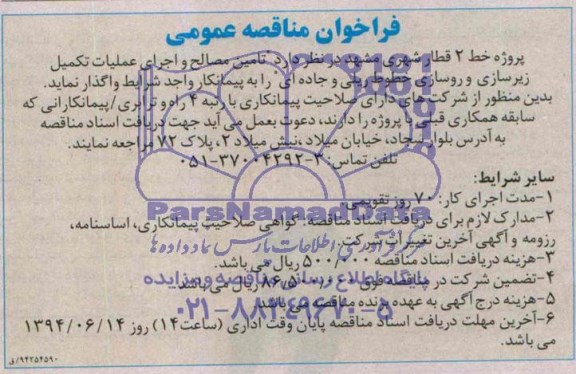 فراخوان مناقصه عمومی
پروژه خط ۲ قطار شهری مشهد در نظر دارد تامین مصالح و اجرای عملیات تکمیل
زیرسازی و روسازی خطوط ریلی و جاده ای را به پیمانکار واجد شرایط واگذار نماید.
بدین منظور از شرکت های دارای صلاحیت پیمانکاری با رتبه ۴ راه و ترابری/پیمانکارانی که
سابقه همکاری قبلی با پروژه را دارند، دعوت بعمل می آید جهت دریافت اسناد مناقصه
به آدرس بلوار سجاد، خیابان میلاد ،نبش میلاد ۲، پلاک ۷۲ مراجعه نمایند.
تلفن تماس: ۲-۳۷۰۰۴۲۹۲-۰۵۱
سایر شرایط:
۱-مدت اجرای کار: ۷۰ روز تقویمی.
ParsNamadData
۲-مدارک لازم برای دریافت اسناد مناقصه: گواهی صلاحیت پیمانکاری، اساسنامه،
رزومه و آگهی آخرین تغییرات شرکت.
گردآوری اطلاعات پارس نماد داده ها
۳-هزینه دریافت اسناد مناقصه ۵۰۰/۰۰۰ ریال می باشد.
پایگاه اطلاع رسانی مناقصه و مزایده
۴-تضمین شرکت در مناقصه فوق ریال می باشد.
۵-هزینه درج آگهی به عهده برنده مناقصه می باشد.
۰۲۱-۸۸۳۴۹۶۷۰-۵
۶-آخرین مهلت دریافت اسناد مناقصه پایان وقت اداری (ساعت۱۴) روز ۱۳۹۴/۰۶/۱۴
می باشد.
۹۴۲۵۴۵۹۰/ق